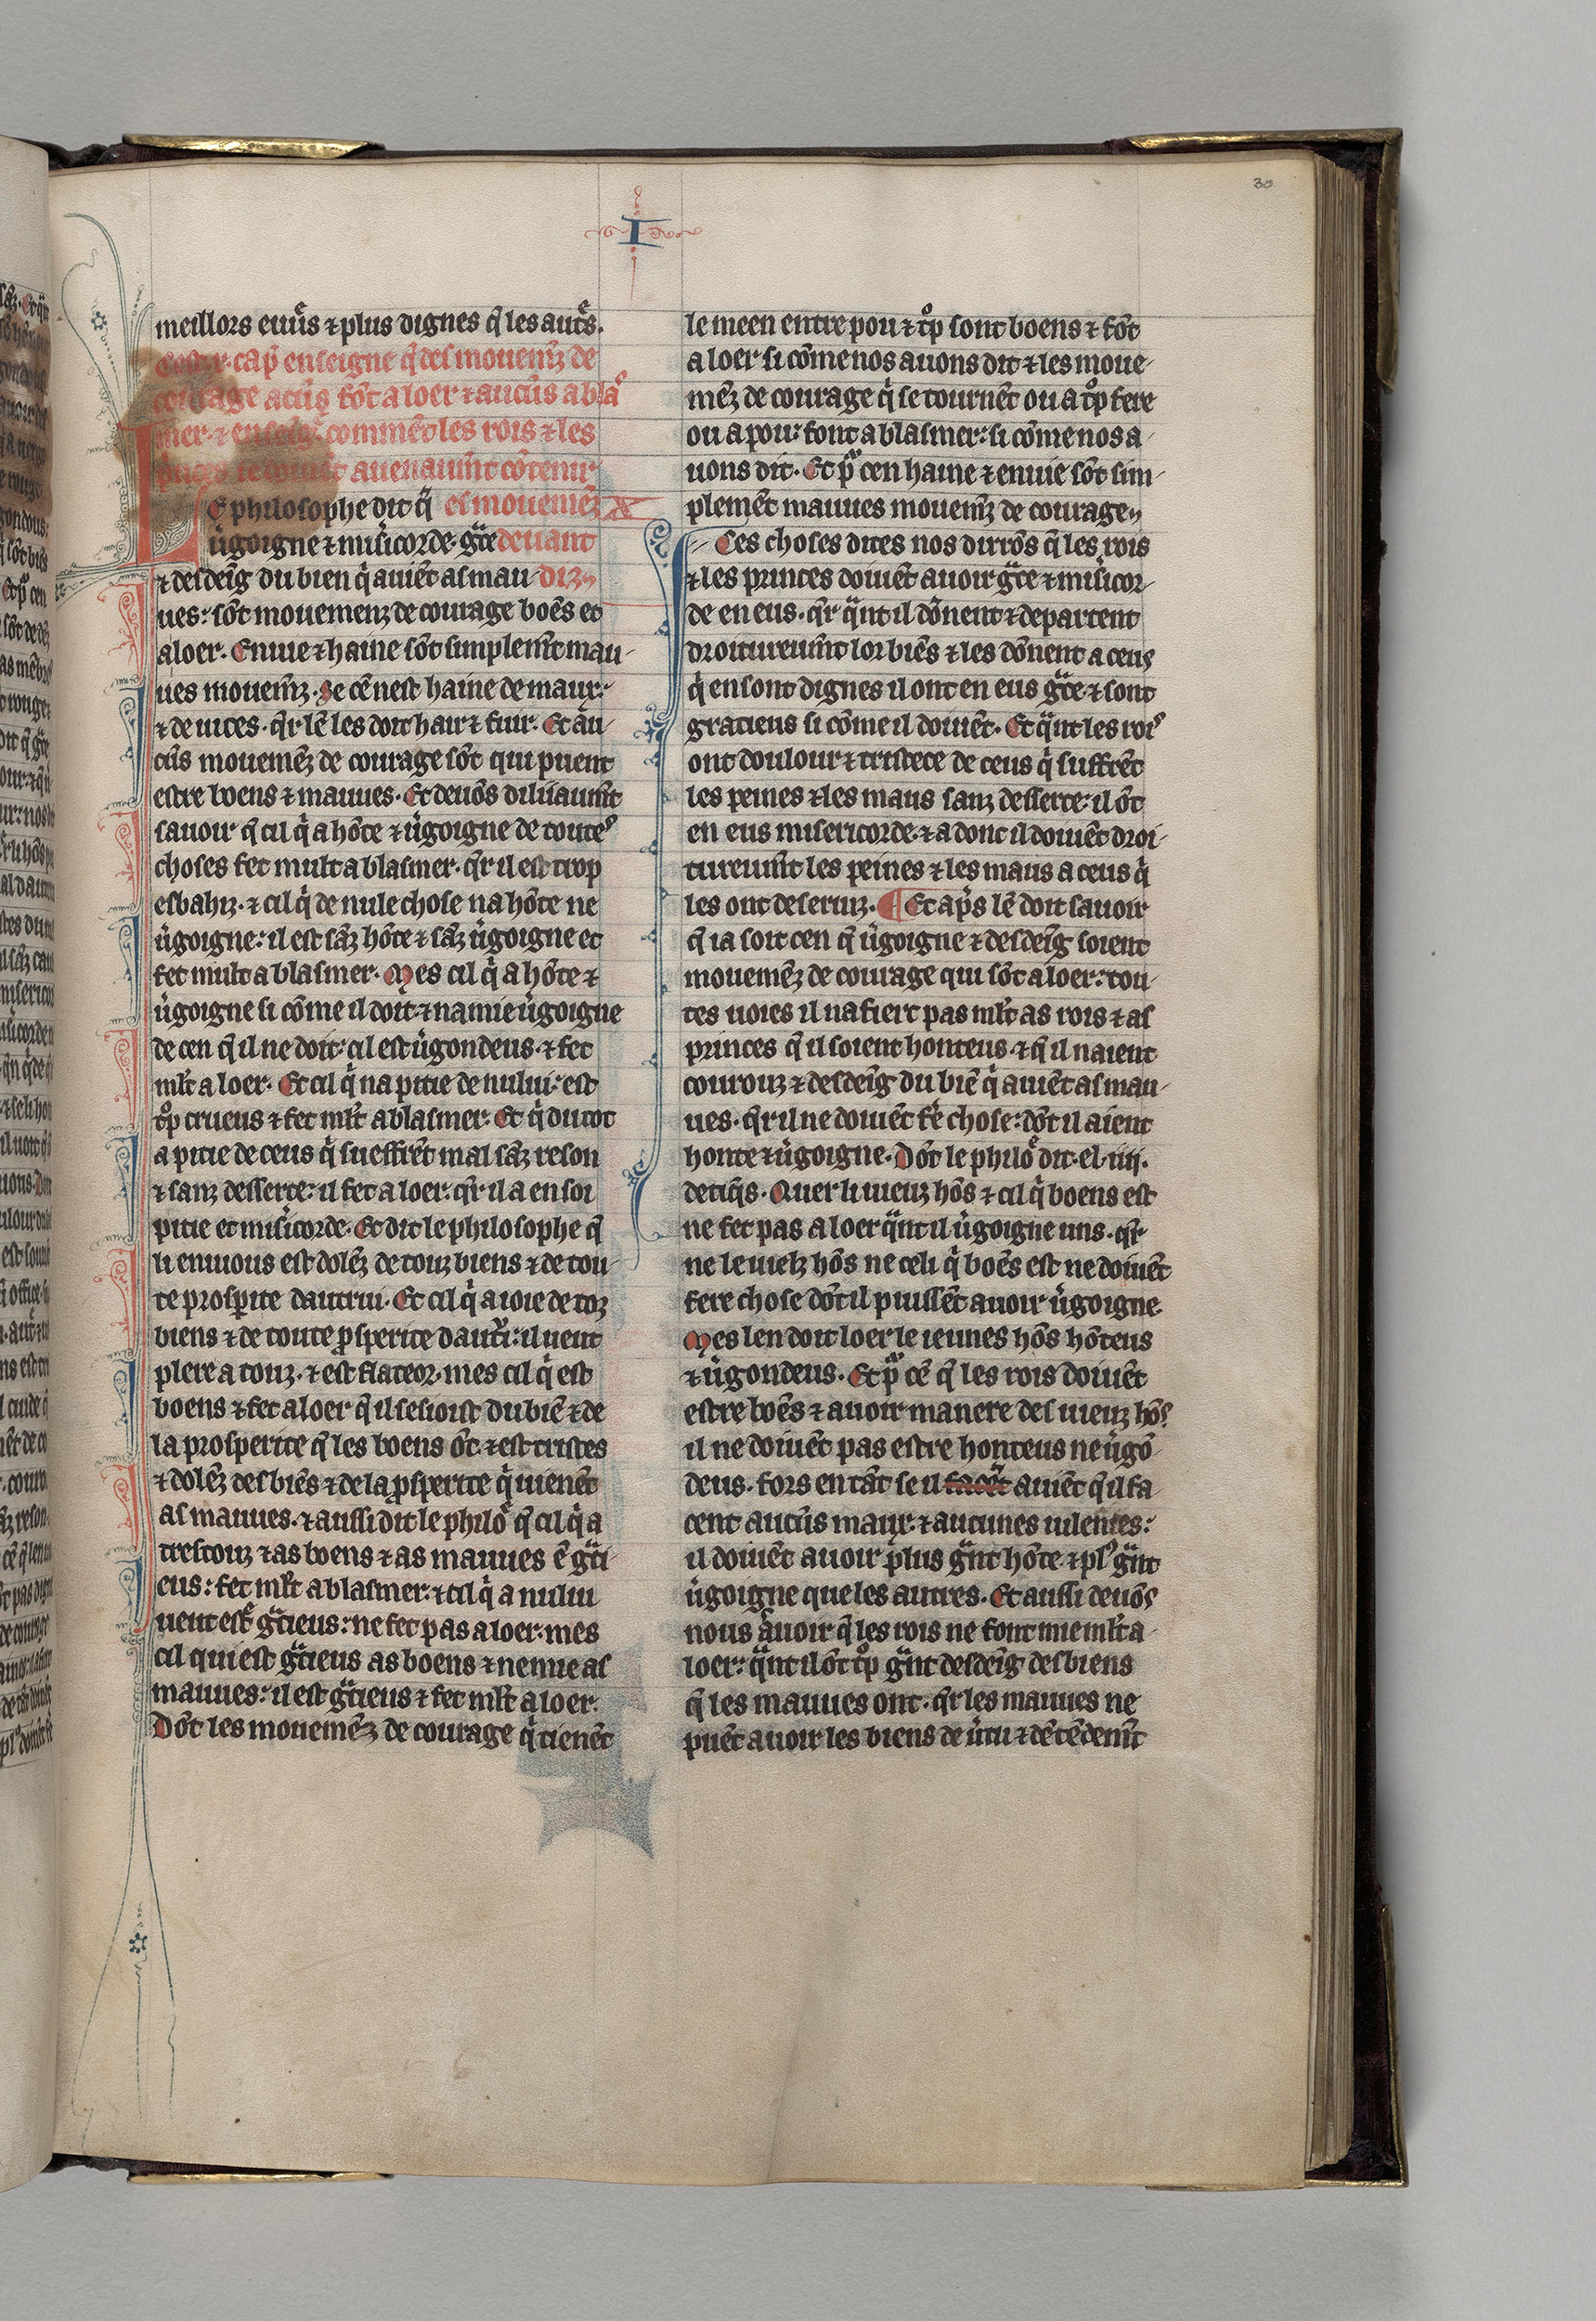 I
30
meillors euur̃s ⁊ plus dignes q̃ les autr̃s.
Cest x. cap̃ enseigne q̃ des mouemẽz de
courage acũs sõt a loer ⁊ aucũs a blaˢ
mer. ⁊ enseigne commẽt les rois ⁊ les
princes se doiuẽt auenaumt cõtenir
Le philosophe dit q̃ es mouemẽz
ũgoigne ⁊ misicorde. gr̃ce deuant
⁊ desdeĩg du bien q̃ auiẽt as mau diz
ues: sõt mouemenz de courage boẽs et
a loer. Enuie ⁊ haine sõt simplemt mau
ues mouemz. Se cẽ nest haine de maux:
⁊ de uices. q̃r lẽ les doit hair ⁊ fuir. Et au
cũs mouemẽz de courage sõt qui puent
estre boens ⁊ mauues. Et deuõs diliiaumt
sauoir q̃ cil q̃ a hõte ⁊ ũgoigne de toutes
choses fet mult a blasmer. q̃r il est trop
esbahiz. ⁊ cil q̃ de nule chose na hõte ne
ũgoigne: il est sãz hõte ⁊ sãz ũgoigne et
fet mult a blasmer. Mes cil q̃ a hõte ⁊
ũgoigne si cõme il doit. ⁊ na mie ũgoigne
de cen q̃ il ne doit: cil est ũgondeus. ⁊ fet
ml̃t a loer. Et cil q̃ na pitie de nului: est
tºp crueus ⁊ fet ml̃t a blasmer. Et q̃ du tot
a pitie de ceus q̃ sueffrẽt mal sãz reson
⁊ sanz desserte: il fet a loer. q̃r il a en soi
pitie et misicorde. Et dit le philosophe q̃
li enuious est dolẽz de touz biens ⁊ de tou
te prosperite dautrui. Et cil q̃ a ioie de toz
biens ⁊ de toute ꝓsperite dautri: il ueut
plere a touz. ⁊ est flateor. mes cil q̃ est
boens ⁊ fet a loer q̃ il sesioist du biẽ ⁊ de
la prosperite q̃ les boens õt. ⁊ est tristes
⁊ dolẽz des biẽs ⁊ de la ꝓsperite q̃ uienẽt
as mauues. ⁊ aussi dit le philoº q̃ cil q̃ a
trestouz ⁊ as boens ⁊ as mauues ẽ gr̃ci
eus: fet ml̃t a blasmer: ⁊ cil q̃ a nului
ueut estr̃ gr̃cieus: ne fet pas a loer. mes
cil qui est gr̃cieus as boens ⁊ nemie as
mauues: il est gr̃cieus ⁊ fet ml̃t a loer.
Dõt les mouemẽz de courage q̃ tienẽt
le meen entre pou ⁊ tºp sont boens ⁊ fõt
a loer si cõme nos auons dit ⁊ les moue
mẽz de courage q̃ se tournẽt ou a tºp fere
ou a pou: font a blasmer: si cõme nos a
uons dit. Et pᵃ cen haine ⁊ enuie sõt sim
plemẽt mauues mouemz de courage
Ces choses dites nos dirrõs q̃ les rois
⁊ les princes doiuẽt auoir gr̃ce ⁊ misicor
de en eus. q̃r q̃nt il dõnent ⁊ departent
droitureumt lor biẽs ⁊ les dõnent a ceus
q̃ en sont dignes il ont en eus gr̃ce. ⁊ sont
gracieus si cõme il doiuẽt. Et q̃nt les rois
ont doulour ⁊ tristece de ceus q̃ suffrẽt
les peines ⁊ les maus sanz desserte: il õt
en eus misericorde. ⁊ a donc il doiuẽt droi
tureumt les peines ⁊ les maus a ceus q̃
les ont deseruiz. ¶ Et ap̃s lẽ doit sauoir
q̃ ia soit cen q̃ ũgoigne ⁊ desdeĩg soient
mouemẽz de courage qui sõt a loer: tou
tes uoies il nafiert pas ml̃t as rois ⁊ as
princes q̃ il soient honteus. ⁊ q̃ il naient
courouz ⁊ desdeĩg du biẽ q̃ auiẽt as mau
ues. q̃r il ne doiuẽt fẽ chose: dõt il aient
honte ⁊ ũgoigne. Dõt le philoº dit. el. iiij.
detiq̃s. Quer li uieuz hõs ⁊ cil q̃ boens est
ne fet pas a loer q̃nt il ũgoigne uns. q̃r
ne le uielz hõs ne celi q̃ boẽs est ne doiuẽt
fere chose dõt il puissẽt auoir ũgoigne.
Mes len doit loer le ieunes hõs hõteus
⁊ ũgondeus. Et pᵃ cẽ q̃ les rois doiuẽt
estre boẽs ⁊ auoir manere des uieuz hõs.
il ne doiuẽt pas estre honteus ne ũgõ
deus. fors en tãt se il facẽt auiẽt q̃ il fa
cent aucũs maux. ⁊ aucunes uilenies:
il doiuẽt auoir plus gr̃nt hõte ⁊ plˢ gr̃nt
ũgoigne que les autres. Et aussi deuõs
nous sauoir q̃ les rois ne font mie ml̃t a
loer: q̃nt il õt tºp gr̃nt desdeĩg des biens
q̃ les mauues ont. q̃r les mauues ne
puẽt auoir les biens de ũtu ⁊ dẽtẽdemt